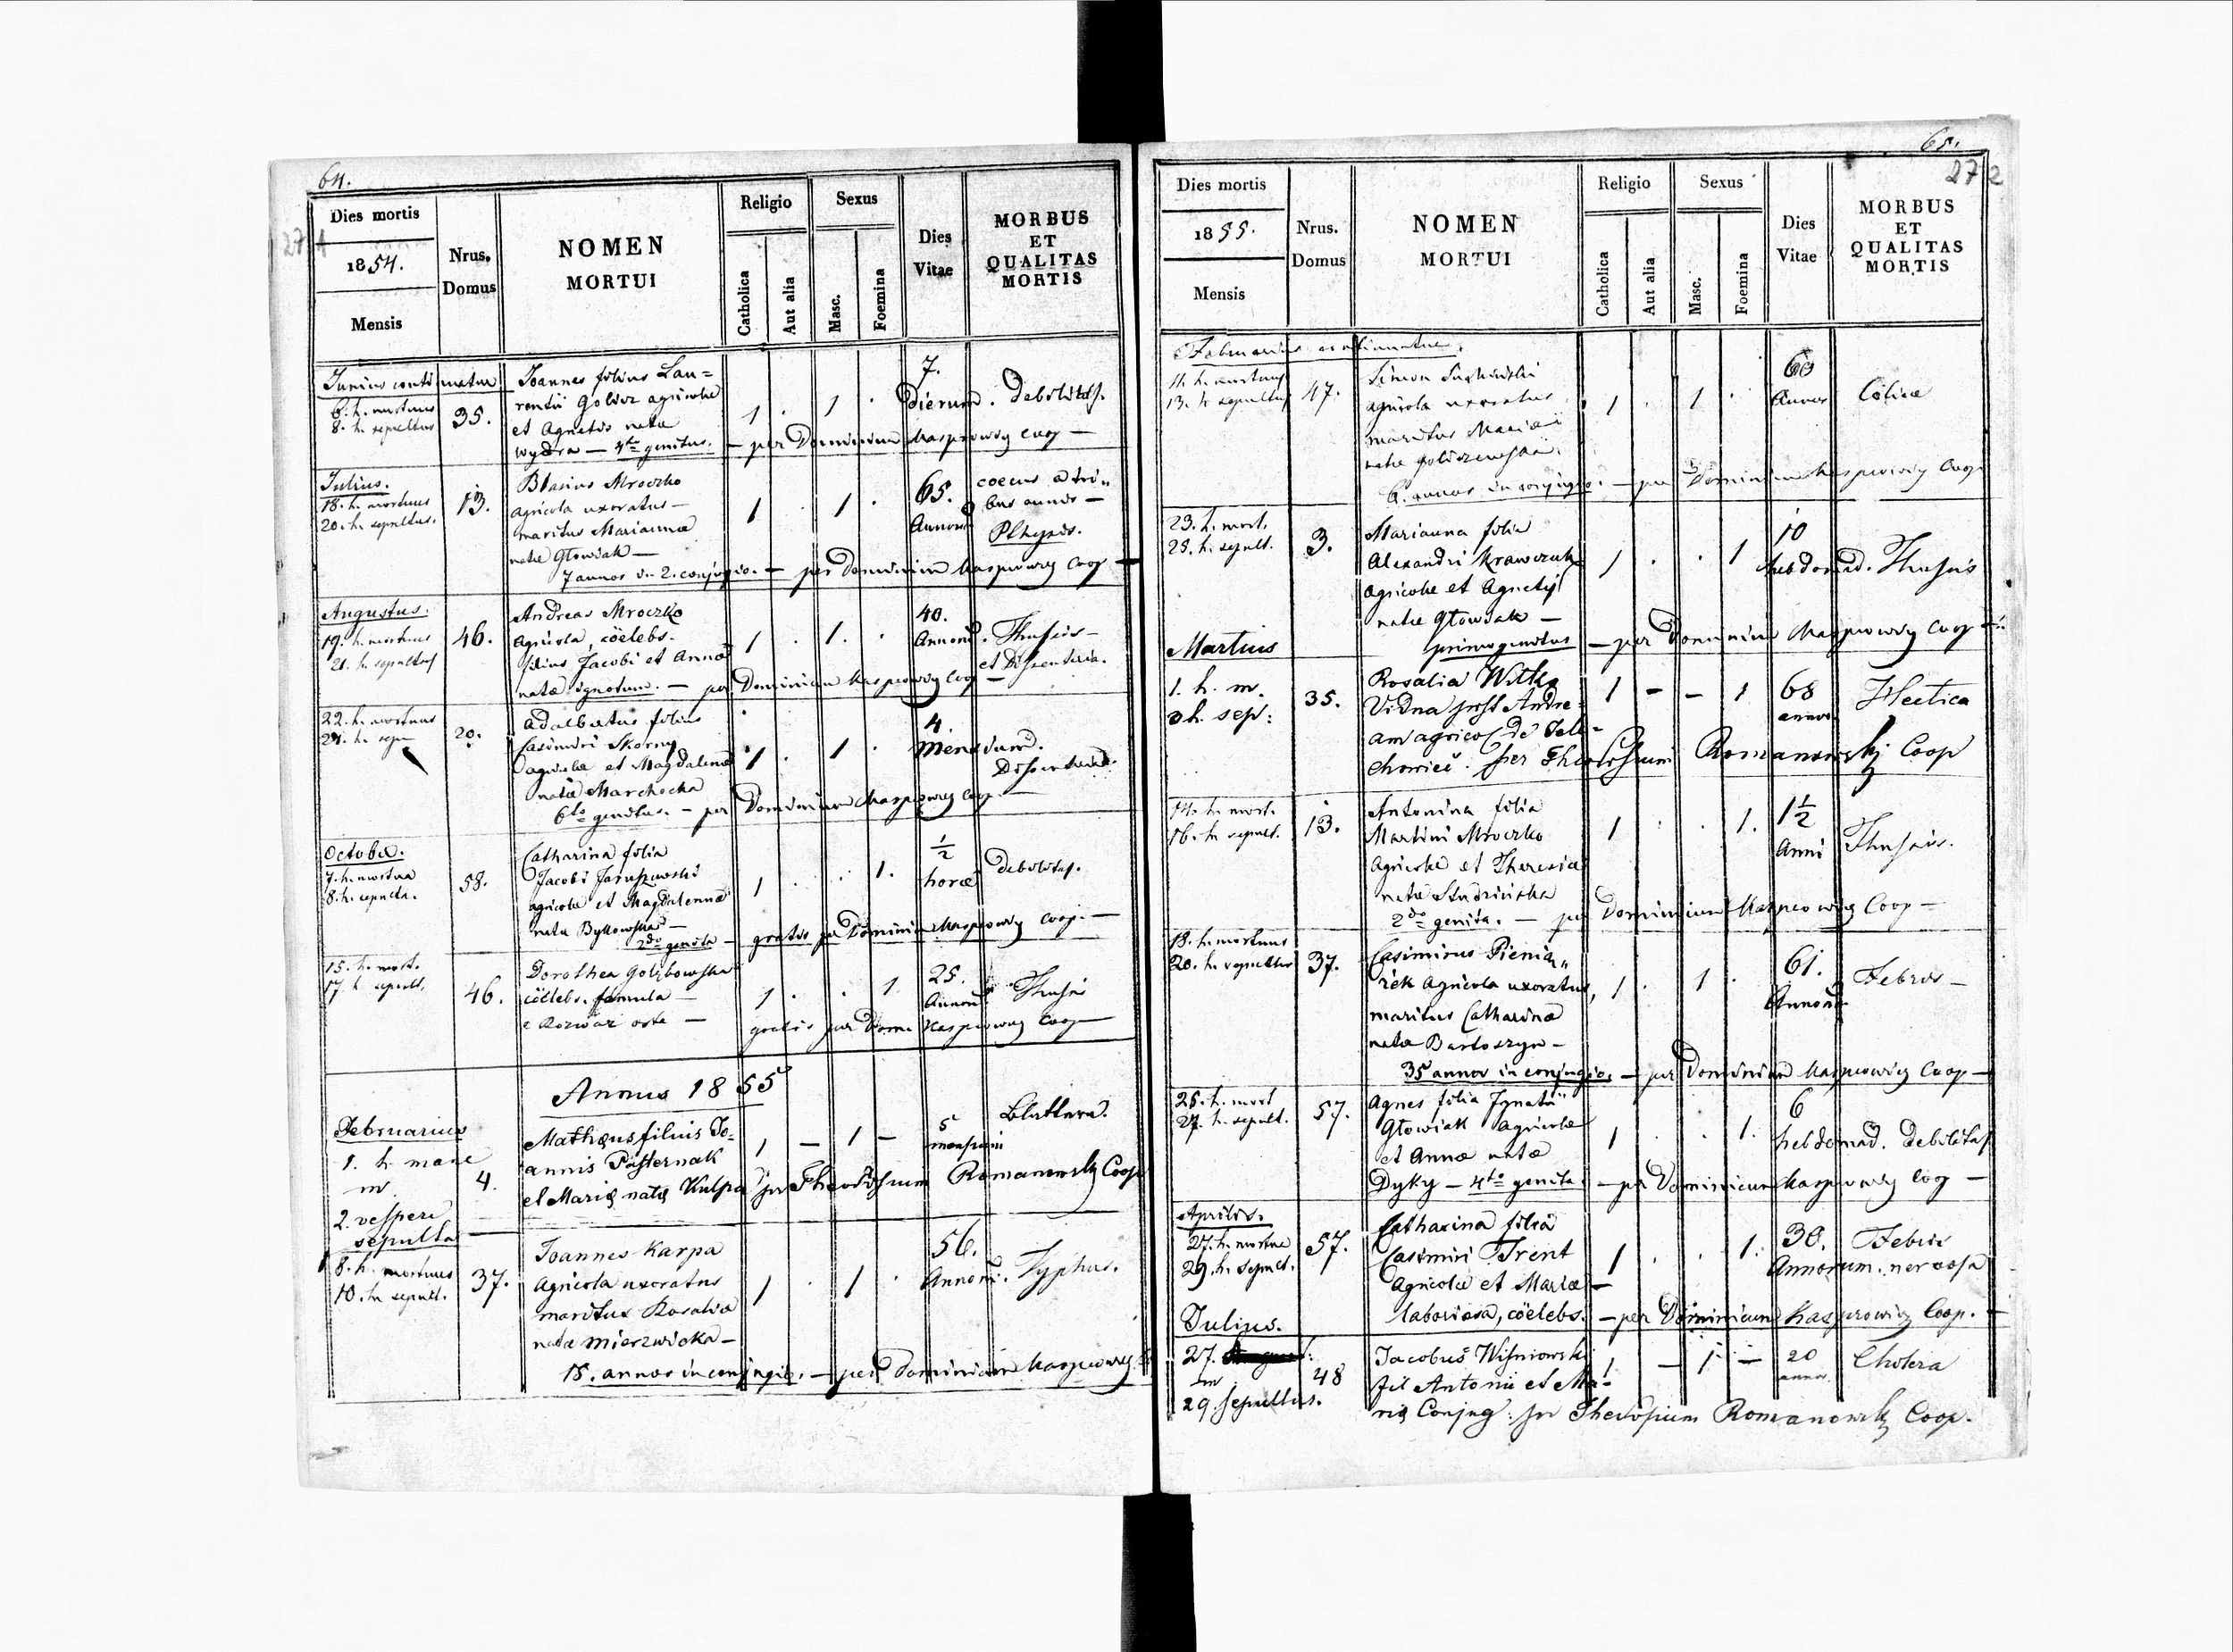 64.
274
Dies mortis
1854.
Mensis
Nrus.
Domus
NOMEN
MORTUI
Religio
Catholica
Aut alia
Sexus
Masc.
Foemina
Dies
Vitae
MORBUS
ET
QUALITAS
MORTIS
Junius continuatur
6. h. mortuus
8. h. sepultus
35.
Joannes filius Lau=
rentii Golisz agricolae
et Agnetis natae
Wydra — 4to genitus. — per Dominicum Kasprowicz Coop —
1 . 1 .
7.
dierum. Debilitas.
Julius.
18. h. mortuus
20. h. sepultus.
13.
Blasius Mroczko
agricola uxoratus —
maritus Mariannae
natae Głowiak —
7 annos in 2. conjugio. — per Dominicum Kasprowicz Coop —
1 . 1 .
65.
Annorum
coecus a tri„
bus annis —
Phtysis.
Augustus.
19. h. mortuus
21. h. sepultus
46.
Andreas Mroczko
agricola, cöelebs.
filius Jacobi et Annae
natae ignotum. — per Dominicum Kasprowicz Coop —
1 . 1. .
40.
Annorum. Thussis —
et Dissenteria.
22. h. mortuus
24. h. sepu
20.
Adalbertus filius
Casimiri Skorny
agricolae et Magdalenae
natae Marchocka
6to genitus. — per Dominicum Kasprowicz Coop. —
1 . 1 .
4.
mensium.
Dissenteria.
October.
7. h. mortua
8. h. sepulta.
58.
Catharina filia
Jacobi Jaruszewski
agricolae et Magdalennae
natae Bykowska —
2do genita — gratis per Dominicum Kasprowicz Coop. —
1 . . 1.
1/2
horae
Debilitas.
15. h. mort.
17. h. sepult.
46.
Dorothea Golębowska
cöelebs. famula —
e Rozwäz orta — gratis per Domi. Kasprowicz Coop —
1 . . 1
25.
Annorum
Thussis
Annus 1855
Februarius
1. h. mane
m
2. vesperi
sepulta
4.
Matheus filius Jo=
annis Pasternak
et Mariæ natæ Kulpa per Theodosium Romanowski Coop
1 — 1 —
5
mensium
Blattera.
8. h. mortuus
10. h. sepult.
37.
Joannes Karpa
Agricola uxoratus
maritus Rosaliae
natae Mierzwicka —
18. annos in conjugio. — per Dominicum Kasprowicz
1 . 1 .
56.
Annorum. Typhus.
65.
272
Dies mortis
1855.
Mensis
Nrus.
Domus
NOMEN
MORTUI
Religio
Catholica
Aut alia
Sexus
Masc.
Foemina
Dies
Vitae
MORBUS
ET
QUALITAS
MORTIS
Februarius continuatur.
11. h. mortuus
13. h. sepultus
47.
Simon
agricola uxoratus
maritus Mariae
natae
6. annos in conjugio. — per Dominicum Kasprowicz Coop
1 . 1 .
60
Annos
Colica
23. h. mort.
25. h. sepult.
3.
Marianna filia
Alexandri Krawczuk
agricolae et Agnetis
natae Głowiak —
primo genitus — per Dominicum Kasprowicz Coop —
1 . . 1
10
hebdomad. Thussis
Martius
1. h. m.
3 h. sep:
35.
Rosalia Witko
Vidua post Andre=
am agricol de Sele=
chowice. per Theodosium Romanowski Coop
1 — — 1
68
annor
Hectica
14. h. mort.
16. h. sepult.
13.
Antonina filia
Martini Mroczko
Agricolae et Theresiae
natae Studzińska
2do genita. — per Dominicum Kasprowicz Coop —
1 . . 1.
1 1/2
Anni
Thussis.
18. h. mortuus
20. h. sepultus
37.
Casimirus Pienią„
żek Agricola uxoratus,
maritus Catharinae
natae Bartoszyn —
35 annos in conjugio, — per Dominicum Kasprowicz Coop —
1 . 1 .
61.
Annorum
Febris —
25. h. mort
27. h. sepult.
57.
Agnes filia Ignatii
Głowiak Agricolae
et Annae natae
Dyky — 4to genita. — per Dominicum Kasprowicz Coop —
1 . . 1.
6
hebdomad. Debilitas
Aprilis.
27. h. mortua
29. h. sepult.
57.
Catharina filia
Casimiri Trent
Agricolae et Mariae —
laboriosa, cöelebs. — per Dominicum Kasprowicz Coop. —
1 . . 1.
30.
Annorum.
Febris
nervosa
Julius.
27.
m
29. sepultus.
48
Jacobus Wisniowski
fil Antonii et Ma=
riæ Conjug: per Theodosium Romanowski Coop.
1 — 1 —
20
annor.
Cholera